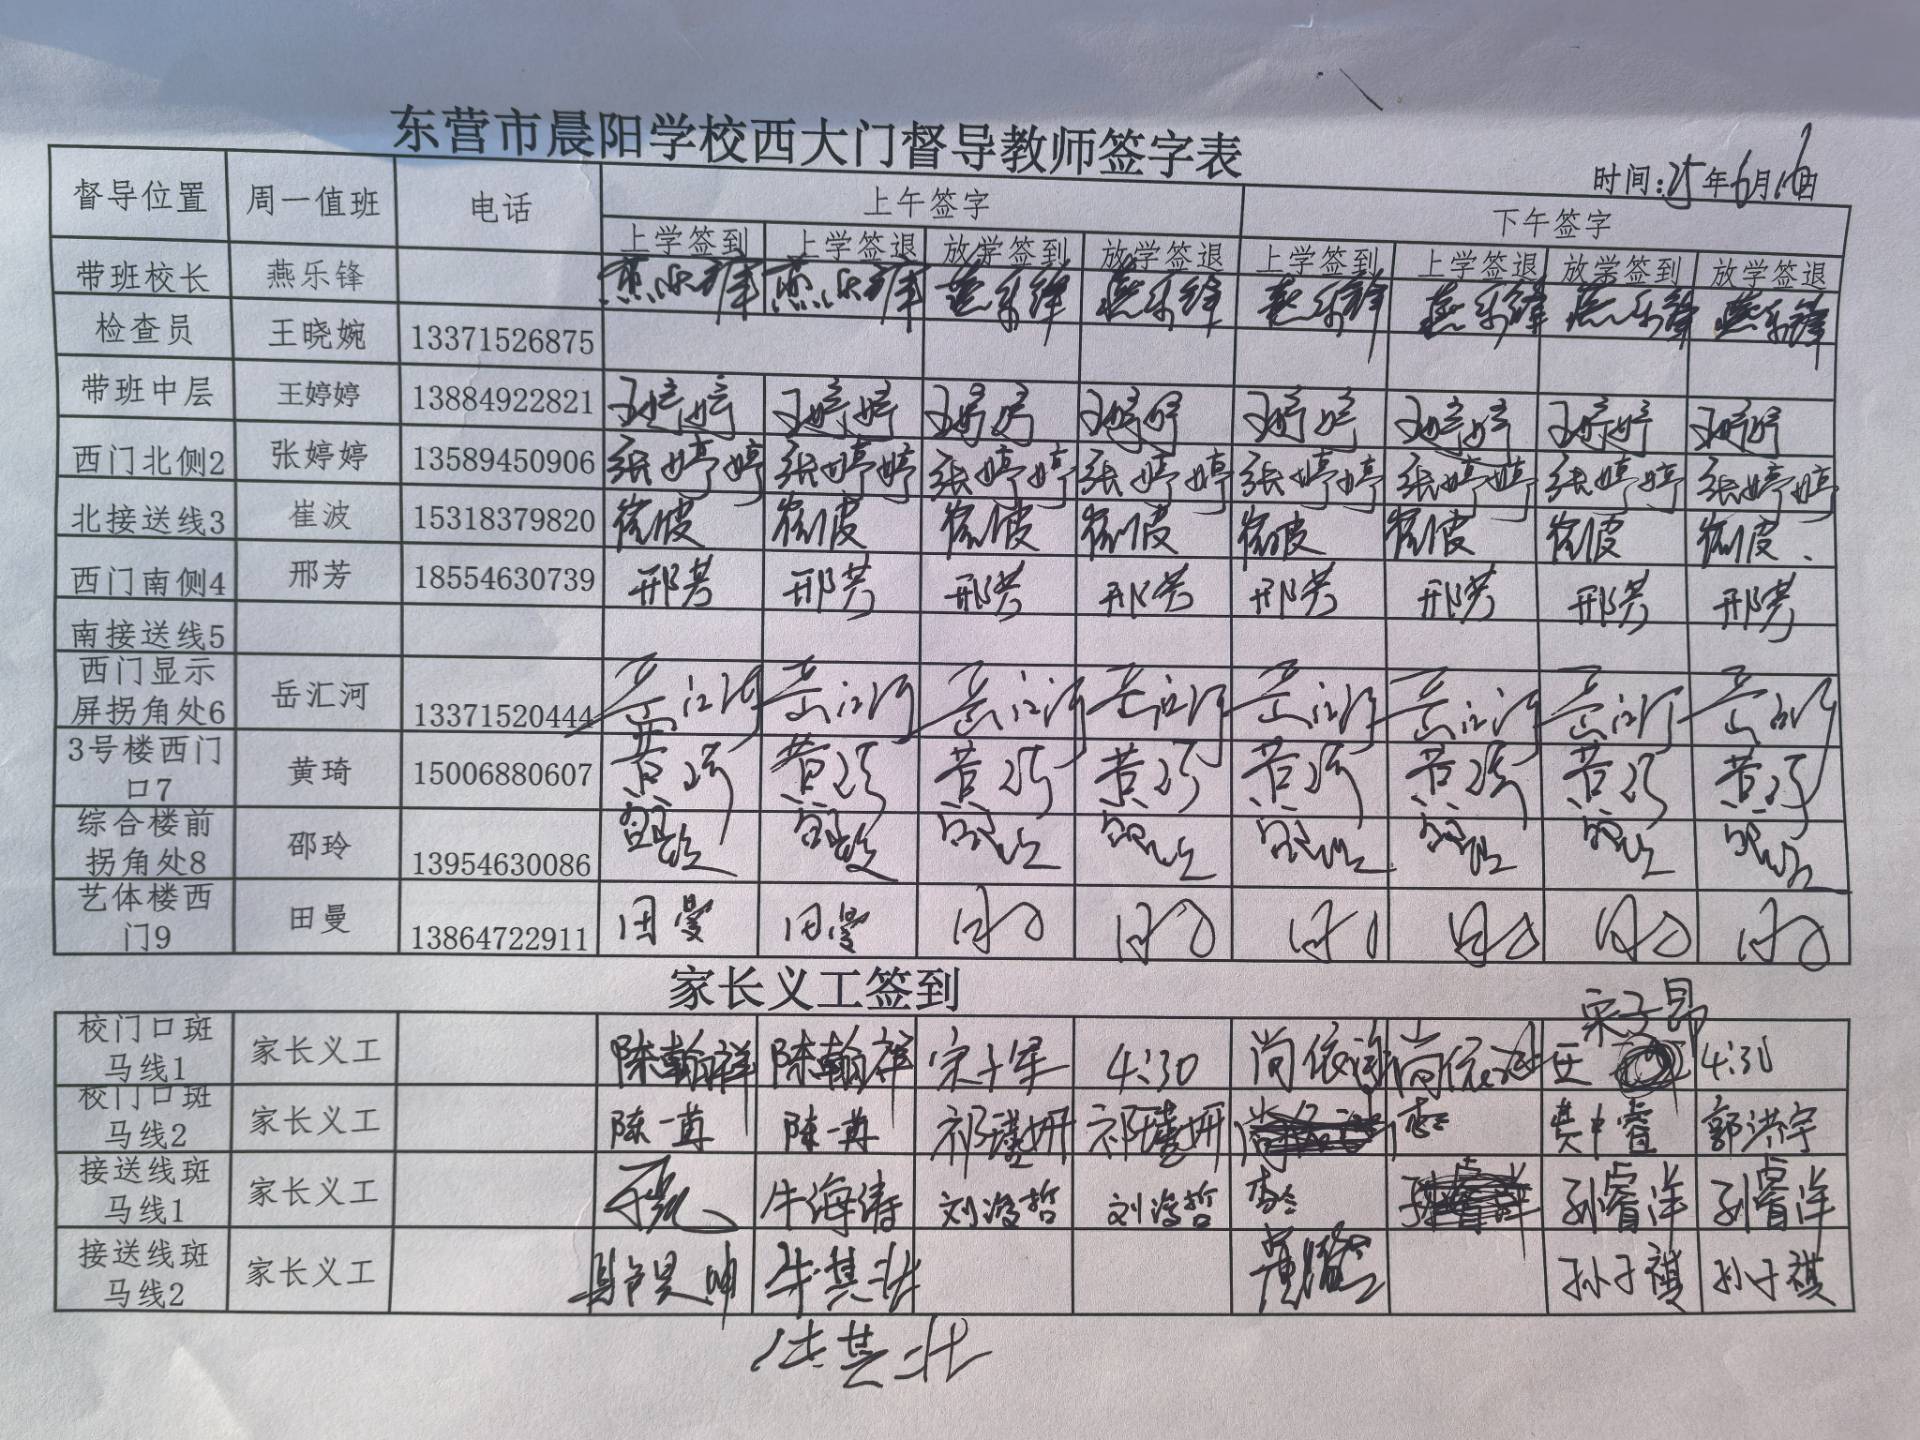 东营市晨阳学校西大门督导教师签字表
时间:25年6月16日
督导位置 周一值班 电话 上午签字 下午签字
上学签到 上学签退 放学签到 放学签退 上学签到 上学签退 放学签到 放学签退
带班校长 燕乐锋 燕乐锋 燕乐锋 燕乐锋 燕乐锋 燕乐锋 燕乐锋 燕乐锋 燕乐锋
检查员 王晓婉 13371526875
带班中层 王婷婷 13884922821 王婷婷 王婷婷 王婷婷 王婷婷 王婷婷 王婷婷 王婷婷 王婷婷
西门北侧2 张婷婷 13589450906 张婷婷 张婷婷 张婷婷 张婷婷 张婷婷 张婷婷 张婷婷 张婷婷
北接送线3 崔波 15318379820 崔波 崔波 崔波 崔波 崔波 崔波 崔波 崔波
西门南侧4 邢芳 18554630739 邢芳 邢芳 邢芳 邢芳 邢芳 邢芳 邢芳 邢芳
南接送线5
西门显示
屏拐角处6 岳汇河 13371520444 岳汇河 岳汇河 岳汇河 岳汇河 岳汇河 岳汇河 岳汇河 岳汇河
3号楼西门
口7 黄琦 15006880607 黄琦 黄琦 黄琦 黄琦 黄琦 黄琦 黄琦 黄琦
综合楼前
拐角处8 邵玲 13954630086 邵玲 邵玲 邵玲 邵玲 邵玲 邵玲 邵玲 邵玲
艺体楼西
门9 田曼 13864722911 田曼 田曼
家长义工签到
宋子昂
校门口斑
马线1 家长义工 陈翰祥 陈翰祥 宋子军 4:30 尚依 尚依 4:30
校门口斑
马线2 家长义工 陈一苒 陈一苒 祁瑾妍 祁瑾妍 黄中睿 郭洪宇
接送线斑
马线1 家长义工 牛海涛 刘濬哲 刘濬哲 孙睿洋 孙睿洋
接送线斑
马线2 家长义工 牛其北 孙子祺 孙子祺